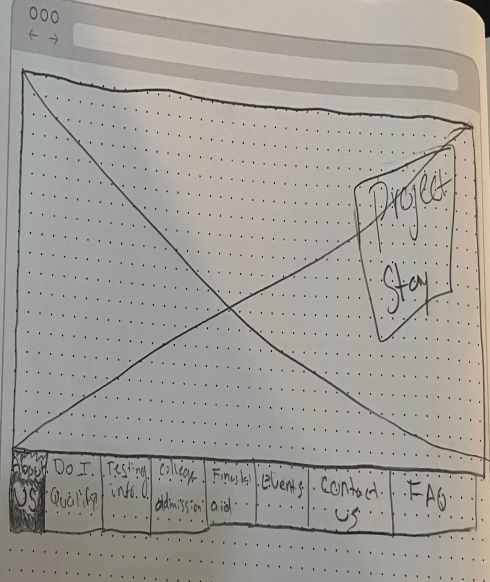 Project
Stay
About
US
Do I
Qualify
Testing
info.
College
addmission
Finacial
aid
Events
Contact
us
FAQ